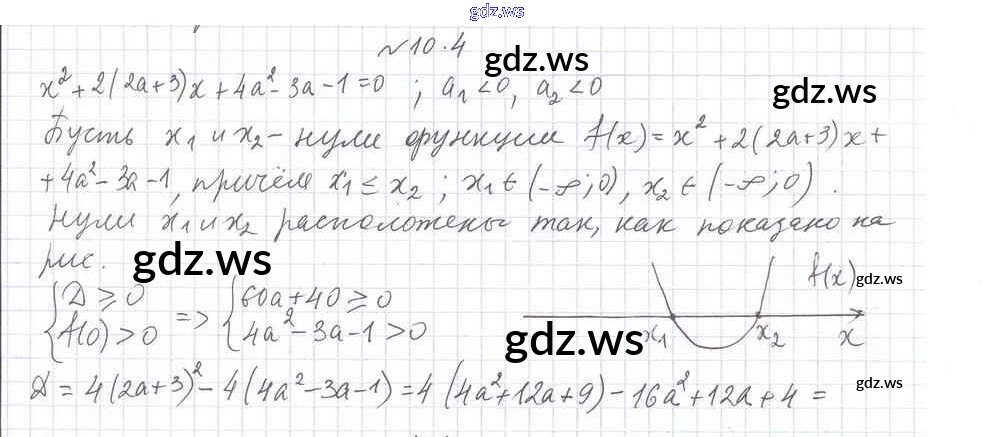 gdz.ws
№10.4
gdz.ws
x²+2(2a+3)x+4a²-3a-1=0 ; a₁<0, a₂<0
gdz.ws
Пусть x₁ и x₂ - нули функции f(x)=x²+2(2a+3)x+
+4a²-3a-1, причём x₁≤x₂ ; x₁∈(-∞;0), x₂∈(-∞;0).
Нули x₁ и x₂ расположены так, как показано на
рис.
gdz.ws
f(x)
gdz.ws
{D≥0 => {60a+40≥0
{f(0)>0 {4a²-3a-1>0
x₁ x₂ x
gdz.ws
D=4(2a+3)²-4(4a²-3a-1)=4(4a²+12a+9)-16a²+12a+4=
gdz.ws